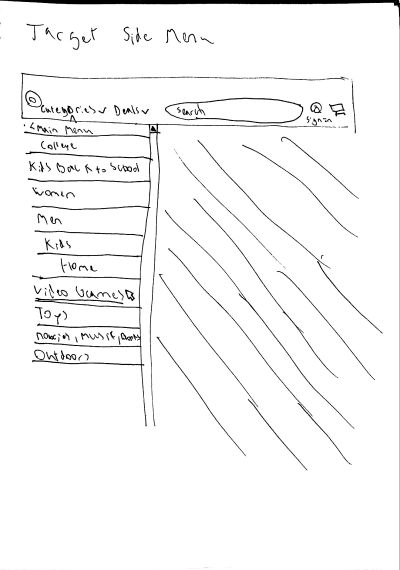 Target Side Menu
Categories Deals search
sign in
<Main Menu
College
Kids Back to School
Women
Men
Kids
Home
Video Games
Toys
Movies, Music, Books
Outdoors